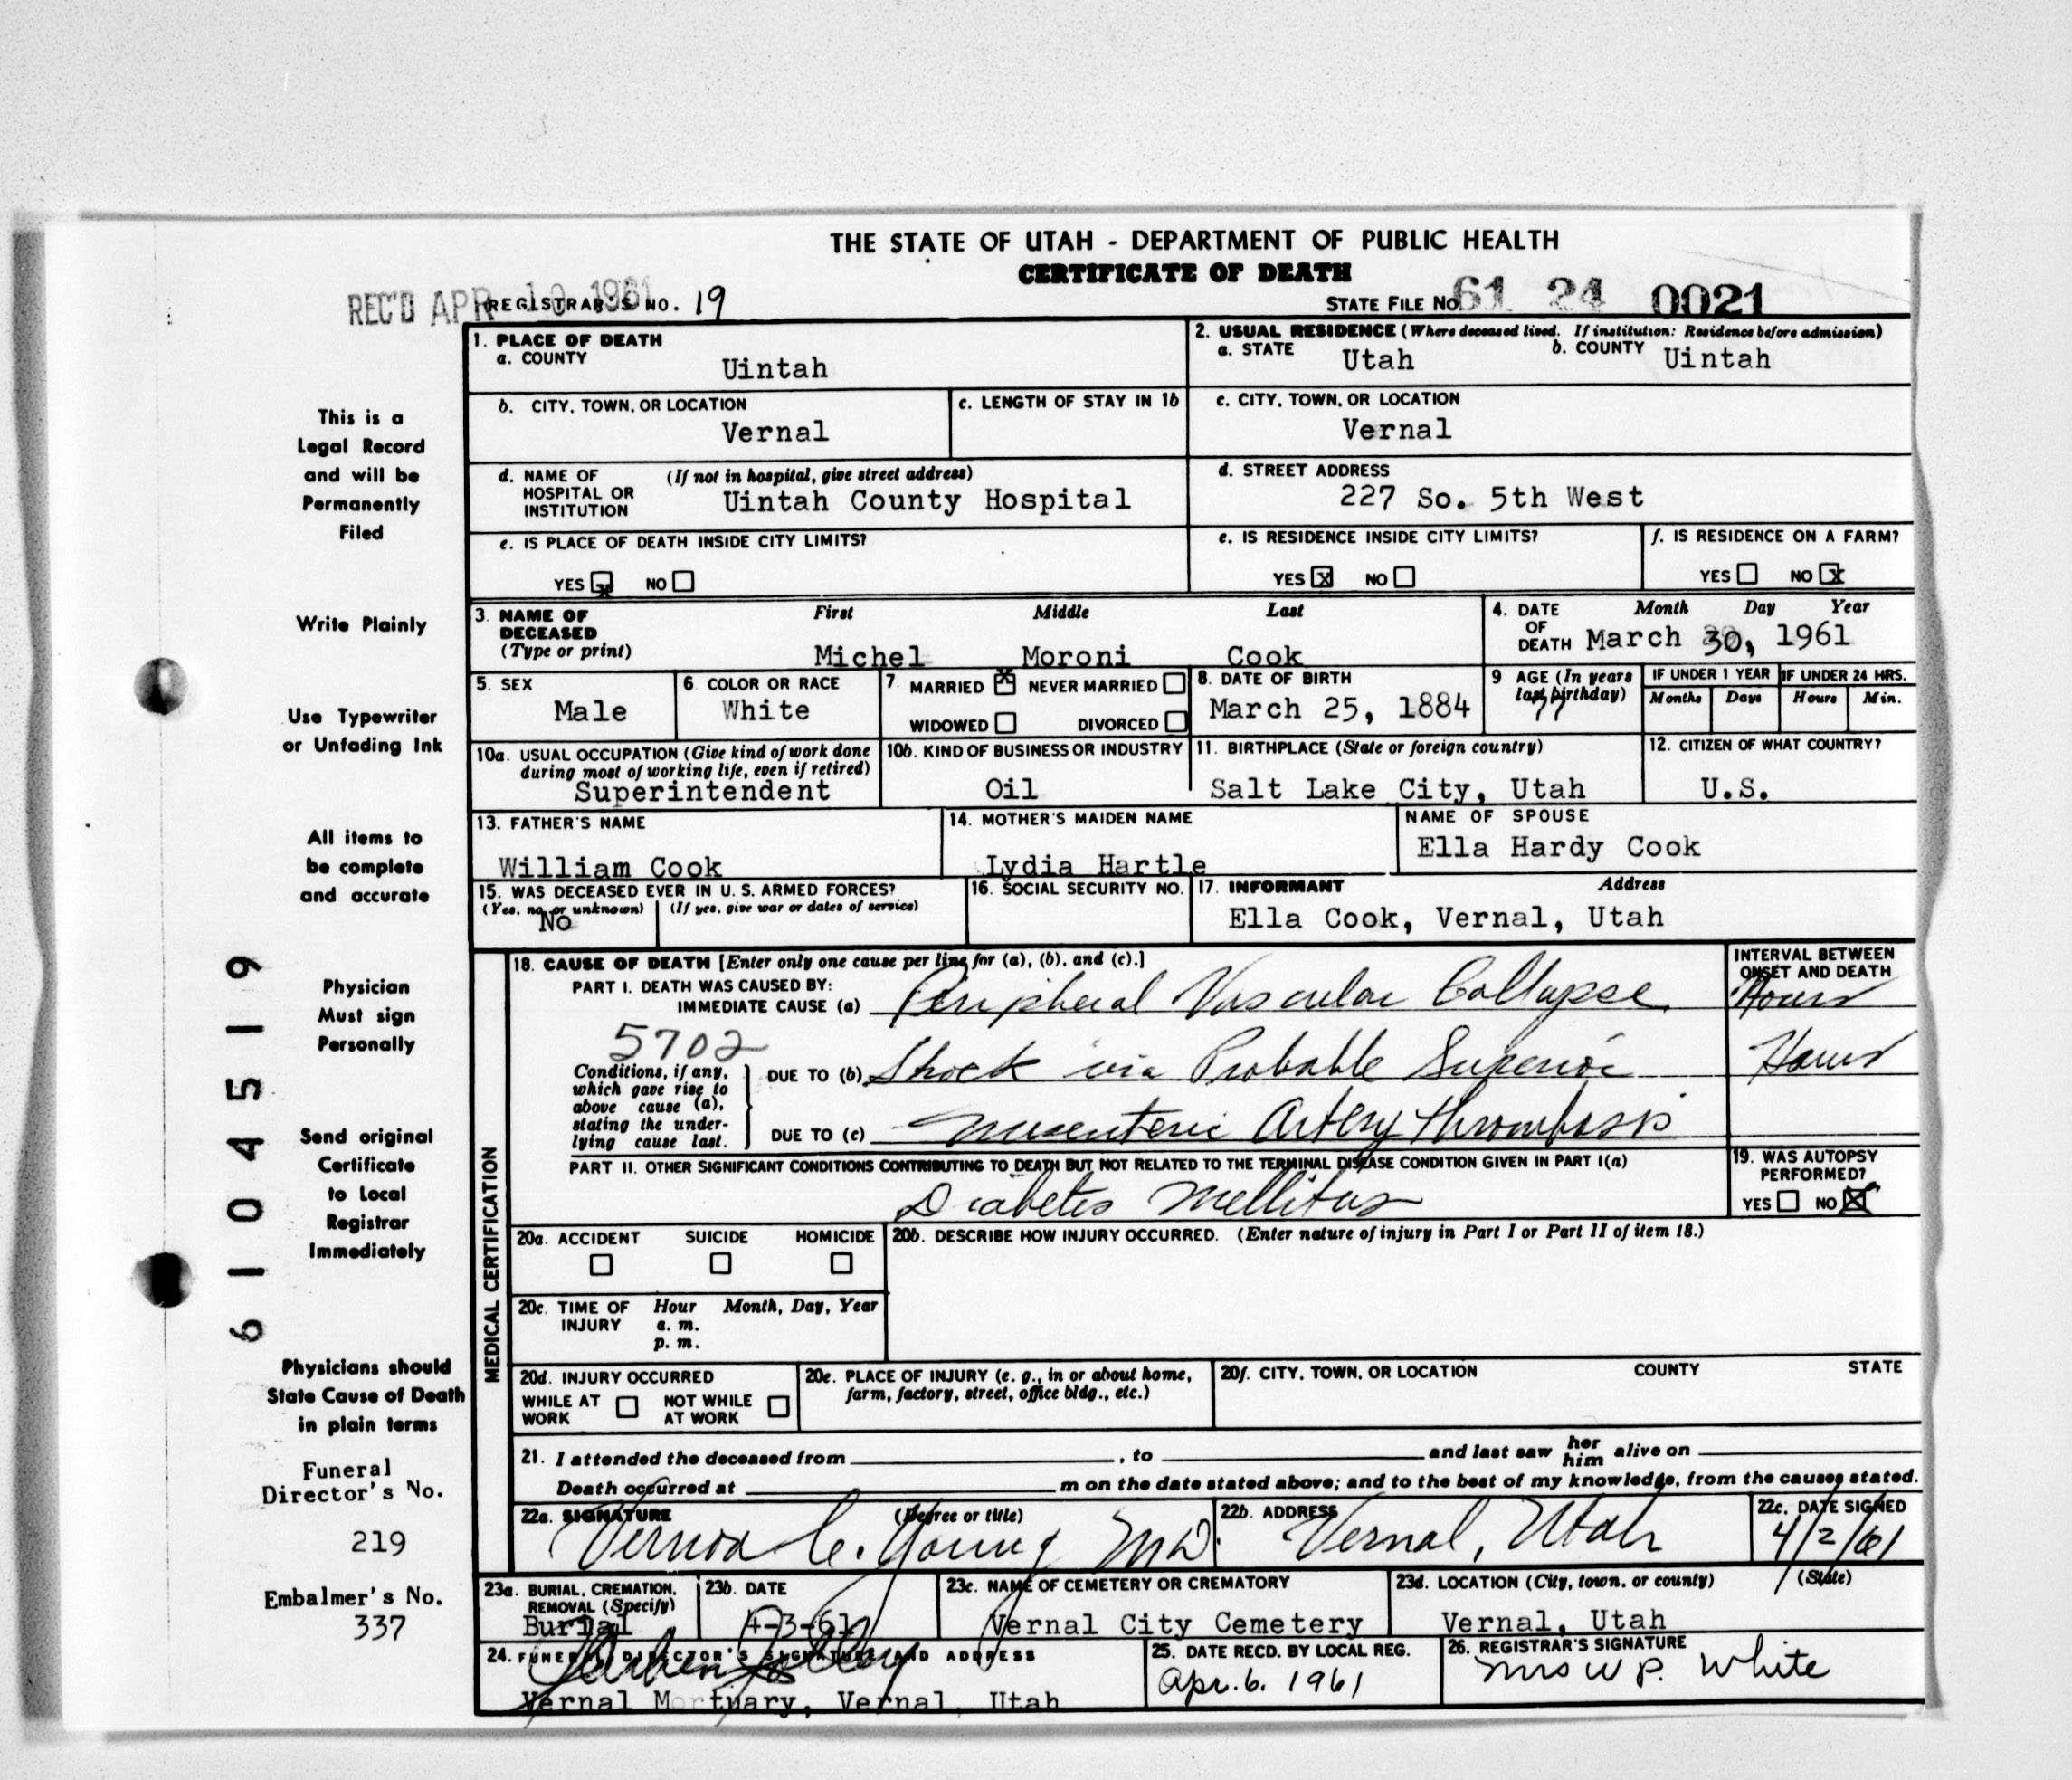 THE STATE OF UTAH - DEPARTMENT OF PUBLIC HEALTH
CERTIFICATE OF DEATH
REC'D APR 10 1961 REGISTRAR'S NO. 19 STATE FILE NO. 61 24 0021
1. PLACE OF DEATH
a. COUNTY Uintah
2. USUAL RESIDENCE (Where deceased lived. If institution: Residence before admission)
a. STATE Utah b. COUNTY Uintah
b. CITY, TOWN, OR LOCATION Vernal
c. LENGTH OF STAY IN 1b
c. CITY, TOWN, OR LOCATION
Vernal
d. NAME OF HOSPITAL OR INSTITUTION (If not in hospital, give street address)
Uintah County Hospital
d. STREET ADDRESS
227 So. 5th West
e. IS PLACE OF DEATH INSIDE CITY LIMITS?
YES x NO
e. IS RESIDENCE INSIDE CITY LIMITS?
YES X NO
f. IS RESIDENCE ON A FARM?
YES NO X
3. NAME OF DECEASED (Type or print)
First Middle Last
Michel Moroni Cook
4. DATE OF DEATH Month Day Year
March 30, 1961
5. SEX
Male
6. COLOR OR RACE
White
7. MARRIED x NEVER MARRIED
WIDOWED DIVORCED
8. DATE OF BIRTH
March 25, 1884
9 AGE (In years last birthday)
77
IF UNDER 1 YEAR IF UNDER 24 HRS.
Months Days Hours Min.
10a. USUAL OCCUPATION (Give kind of work done during most of working life, even if retired)
Superintendent
10b. KIND OF BUSINESS OR INDUSTRY
Oil
11. BIRTHPLACE (State or foreign country)
Salt Lake City, Utah
12. CITIZEN OF WHAT COUNTRY?
U.S.
13. FATHER'S NAME
William Cook
14. MOTHER'S MAIDEN NAME
Lydia Hartle
NAME OF SPOUSE
Ella Hardy Cook
15. WAS DECEASED EVER IN U. S. ARMED FORCES?
(Yes, no, or unknown) (If yes, give war or dates of service)
No
16. SOCIAL SECURITY NO.
17. INFORMANT Address
Ella Cook, Vernal, Utah
MEDICAL CERTIFICATION
18. CAUSE OF DEATH [Enter only one cause per line for (a), (b), and (c).]
INTERVAL BETWEEN ONSET AND DEATH
PART I. DEATH WAS CAUSED BY:
IMMEDIATE CAUSE (a) Peripheral Vascular Collapse Hours
5702
Conditions, if any, which gave rise to above cause (a), stating the underlying cause last.
DUE TO (b) Shock via Probable Superior Hours
DUE TO (c) Mesenteric Artery Thrombosis
PART II. OTHER SIGNIFICANT CONDITIONS CONTRIBUTING TO DEATH BUT NOT RELATED TO THE TERMINAL DISEASE CONDITION GIVEN IN PART I(a)
Diabetes Mellitus
19. WAS AUTOPSY PERFORMED?
YES NO X
20a. ACCIDENT SUICIDE HOMICIDE
20b. DESCRIBE HOW INJURY OCCURRED. (Enter nature of injury in Part I or Part II of item 18.)
20c. TIME OF INJURY Hour Month, Day, Year
a. m.
p. m.
20d. INJURY OCCURRED
WHILE AT WORK NOT WHILE AT WORK
20e. PLACE OF INJURY (e. g., in or about home, farm, factory, street, office bldg., etc.)
20f. CITY, TOWN, OR LOCATION COUNTY STATE
21. I attended the deceased from , to and last saw her him alive on
Death occurred at m on the date stated above; and to the best of my knowledge, from the causes stated.
22a. SIGNATURE (Degree or title)
Vernon C. Young MD.
22b. ADDRESS
Vernal, Utah
22c. DATE SIGNED
4/2/61
23a. BURIAL, CREMATION, REMOVAL (Specify)
Burial
23b. DATE
4-3-61
23c. NAME OF CEMETERY OR CREMATORY
Vernal City Cemetery
23d. LOCATION (City, town, or county) (State)
Vernal, Utah
24. FUNERAL DIRECTOR'S SIGNATURE AND ADDRESS
Vernal Mortuary, Vernal, Utah
25. DATE RECD. BY LOCAL REG.
Apr. 6. 1961
26. REGISTRAR'S SIGNATURE
Mrs W P. White
This is a
Legal Record
and will be
Permanently
Filed
Write Plainly
Use Typewriter
or Unfading Ink
All items to
be complete
and accurate
Physician
Must sign
Personally
Send original
Certificate
to Local
Registrar
Immediately
Physicians should
State Cause of Death
in plain terms
Funeral
Director's No.
219
Embalmer's No.
337
61 04519